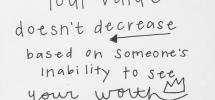 your value
doesn't decrease
based on someone's
inability to see
your worth